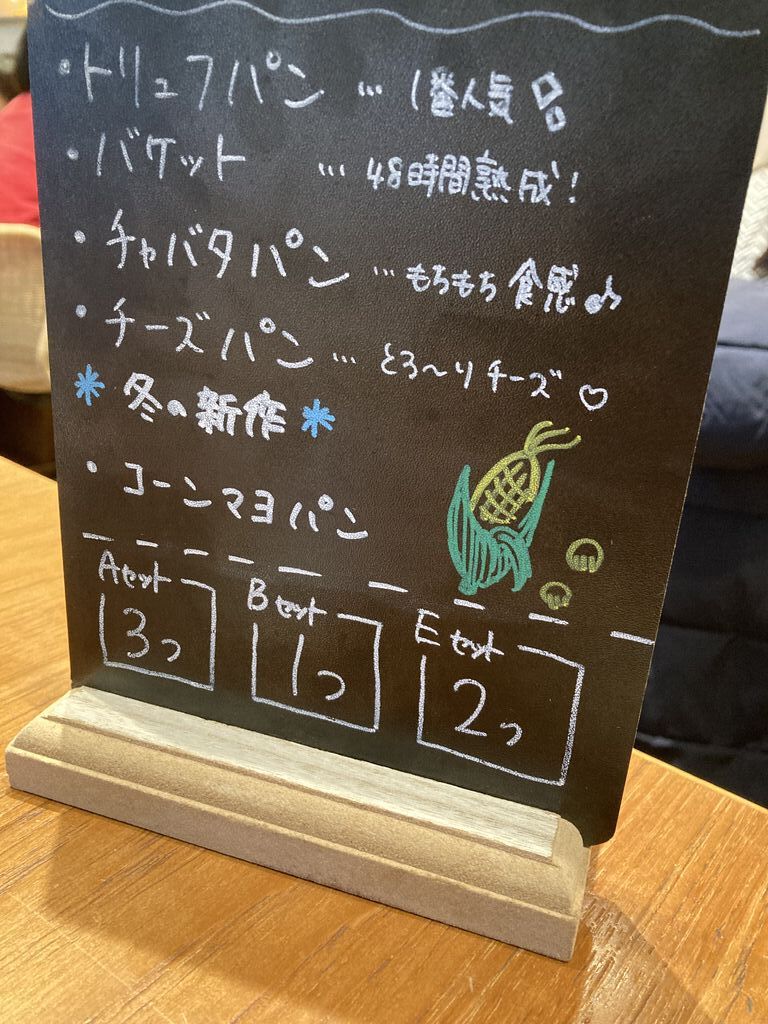 ・トリュフパン … 1番人気
・バケット … 48時間熟成!
・チャバタパン … もちもち食感♪
・チーズパン … とろ〜りチーズ♡
* 冬の新作 *
・コーンマヨパン
Aセット Bセット Eセット
3つ 1つ 2つ